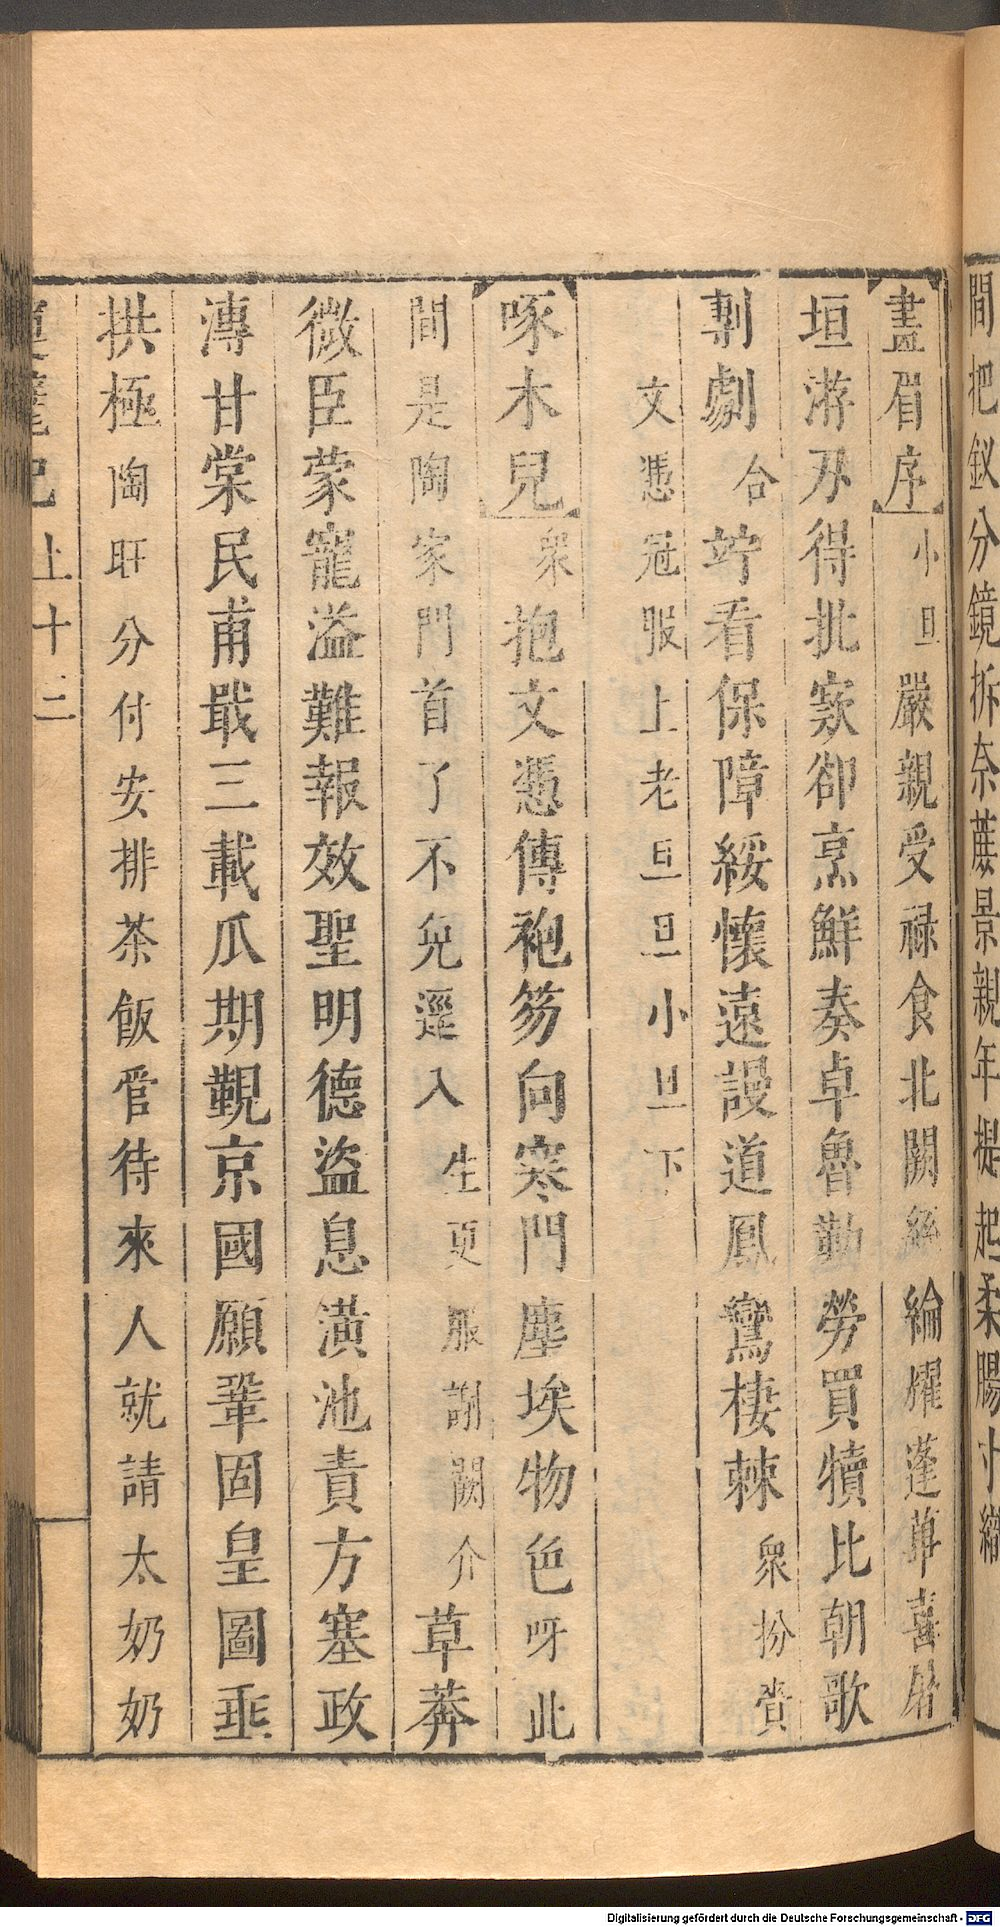 間把釵分鏡拆奈蔗景親年提起柔腸寸
畫眉序小旦嚴親受祿食北闕絲綸耀蓬蓽喜
垣游刃得批窾卻烹鮮奏卓魯勤勞買犢比朝歌
剸劇合竚看保障綏懷遠謾道鳳鸞棲棘衆扮賫
文憑冠服上老旦旦小旦下
啄木兒衆抱文憑傳袍笏向寒門塵埃物色呀此
間是陶家門首了不免逕入生更服謝闕介草莽
微臣蒙寵溢難報效聖明德盜息潢池責方塞政
溥甘棠民甫戢三載瓜期覲京國願鞏固皇圖垂
拱極陶旺分付安排茶飯管待來人就請太奶奶
上十二
Digitalisierung gefördert durch die Deutsche Forschungsgemeinschaft - DFG